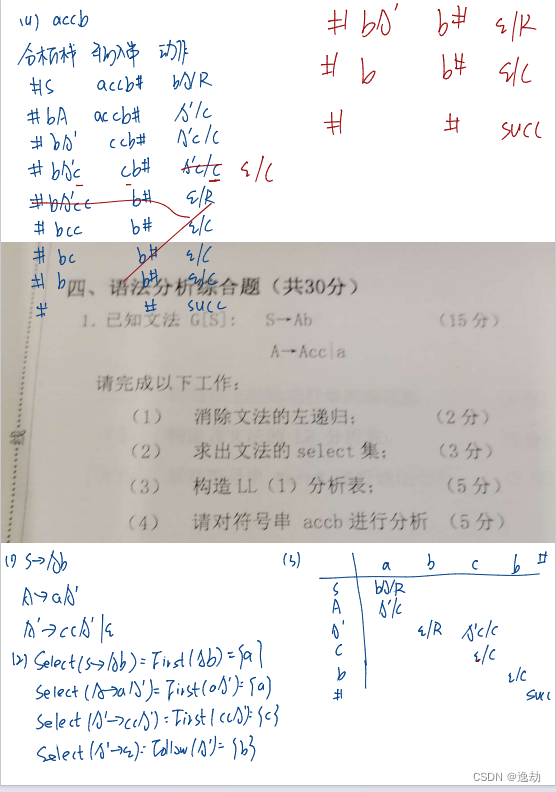 (4) accb
分析栈 输入串 动作
#S accb# bA/R
#bA accb# A'/C
#bA' ccb# A'c/C
#bA'c cb# A'c/C ε/C
#bA'cc b# ε/R
#bcc b# ε/C
#bc b# ε/C
#b b# ε/C
# # succ
#bA' b# ε/R
#b b# ε/C
# # succ
四、语法分析综合题（共30分）
1. 已知文法 G[S]: S→Ab （15分）
A→Acc|a
请完成以下工作：
（1） 消除文法的左递归； （2分）
（2） 求出文法的select集； （3分）
（3） 构造LL（1）分析表； （5分）
（4） 请对符号串 accb进行分析 （5分）
线
(1) S→Ab
A→aA'
A'→ccA'|ε
(2) Select(S→Ab)=First(Ab)={a}
Select(A→aA')=First(aA')={a}
Select(A'→ccA')=First(ccA')={c}
Select(A'→ε)=Follow(A')={b}
(3) a b c b #
S bA/R
A A'/C
A' ε/R A'c/C
C ε/C
b ε/C
# succ
CSDN @逸劫